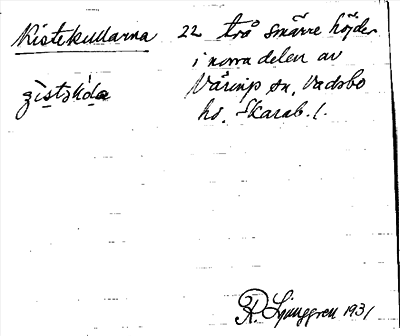 Kistekullarna 22 två smärre höjder
i norra delen av
Väring sn, Vadsbo
hd. Skarab. l.
R. Ljunggren 1931